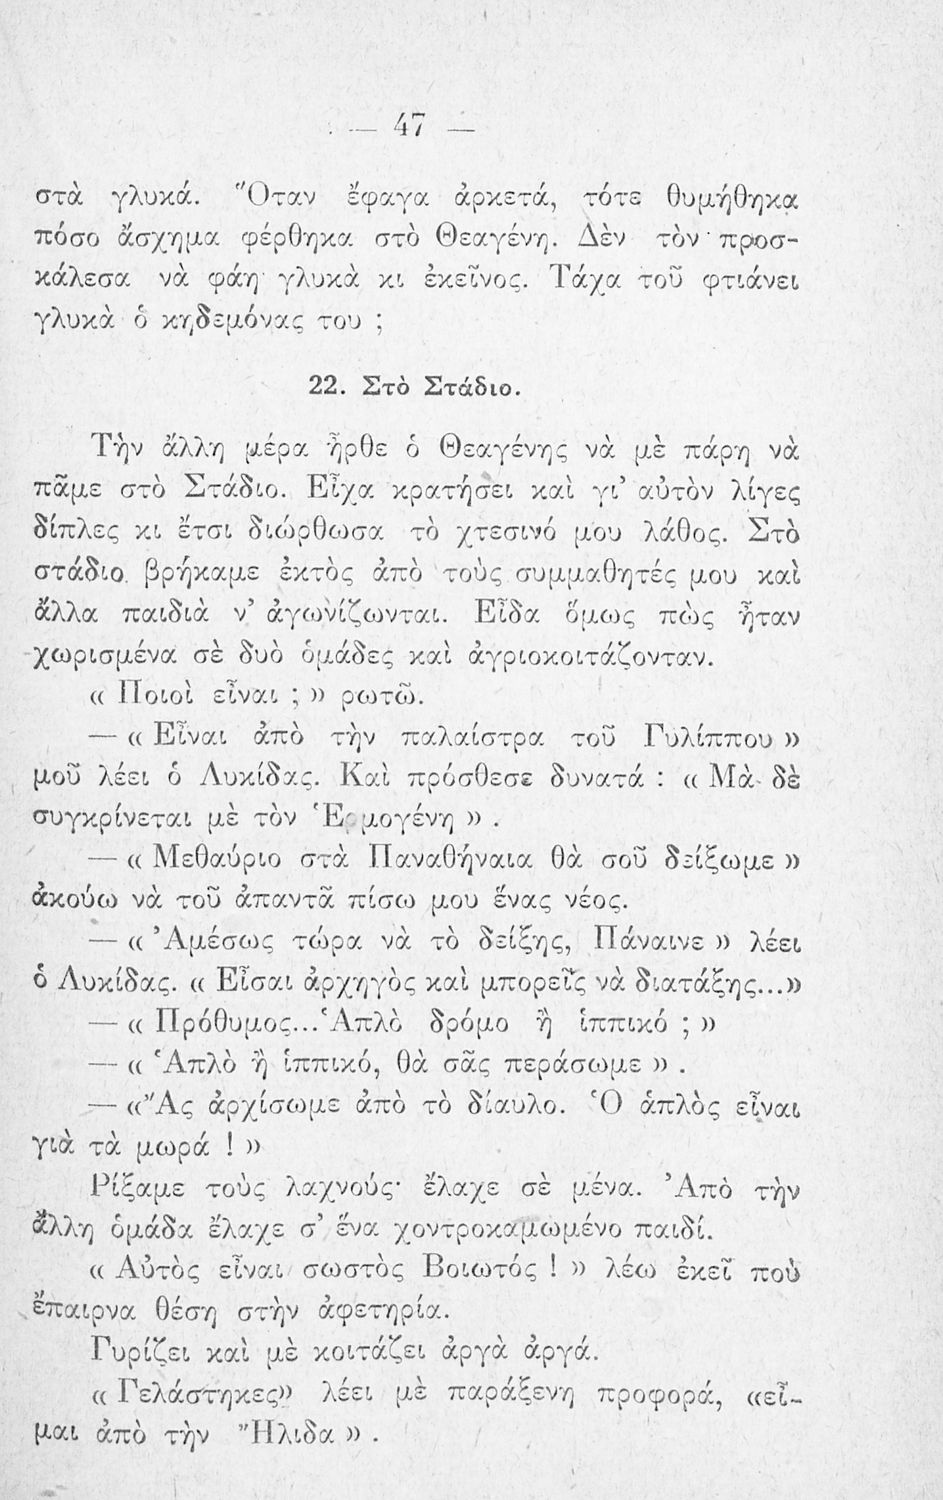 — 47 —
στὰ γλυκά. Ὅταν ἔφαγα ἀρκετά, τότε θυμήθηκα
πόσο ἄσχημα φέρθηκα στὸ Θεαγένη. Δὲν τὸν προσ-
κάλεσα νὰ φάη γλυκὰ κι ἐκεῖνος. Τάχα τοῦ φτιάνει
γλυκὰ ὁ κηδεμόνας του ;
22. Στὸ Στάδιο.
Τὴν ἄλλη μέρα ἦρθε ὁ Θεαγένης νὰ μὲ πάρη νὰ
πᾶμε στὸ Στάδιο. Εἶχα κρατήσει καὶ γι’ αὐτὸν λίγες
δίπλες κι ἔτσι διώρθωσα τὸ χτεσινό μου λάθος. Στὸ
στάδιο βρήκαμε ἐκτὸς ἀπὸ τοὺς συμμαθητές μου καὶ
ἄλλα παιδιὰ ν’ ἀγωνίζωνται. Εἶδα ὅμως πὼς ἦταν
χωρισμένα σὲ δυὸ ὁμάδες καὶ ἀγριοκοιτάζονταν.
« Ποιοὶ εἶναι ; » ρωτῶ.
— « Εἶναι ἀπὸ τὴν παλαίστρα τοῦ Γυλίππου »
μοῦ λέει ὁ Λυκίδας. Καὶ πρόσθεσε δυνατά : « Μὰ δὲ
συγκρίνεται μὲ τὸν Ἑρμογένη » .
— « Μεθαύριο στὰ Παναθήναια θὰ σοῦ δείξωμε »
ἀκούω νὰ τοῦ ἀπαντᾶ πίσω μου ἕνας νέος.
— « Ἀμέσως τώρα νὰ τὸ δείξης, Πάναινε » λέει
ὁ Λυκίδας. « Εἶσαι ἀρχηγὸς καὶ μπορεῖς νὰ διατάξης...»
— « Πρόθυμος...Ἁπλὸ δρόμο ἢ ἱππικό ; »
— « Ἁπλὸ ἢ ἱππικό, θὰ σᾶς περάσωμε » .
— «Ἂς ἀρχίσωμε ἀπὸ τὸ δίαυλο. Ὁ ἁπλὸς εἶναι
γιὰ τὰ μωρά ! »
Ρίξαμε τοὺς λαχνούς· ἔλαχε σὲ μένα. Ἀπὸ τὴν
ἄλλη ὁμάδα ἔλαχε σ’ ἕνα χοντροκαμωμένο παιδί.
« Αὐτὸς εἶναι σωστὸς Βοιωτός ! » λέω ἐκεῖ ποὺ
ἔπαιρνα θέση στὴν ἀφετηρία.
Γυρίζει καὶ μὲ κοιτάζει ἀργὰ ἀργά.
« Γελάστηκες» λέει μὲ παράξενη προφορά, «εἶ-
μαι ἀπὸ τὴν Ἤλιδα » .